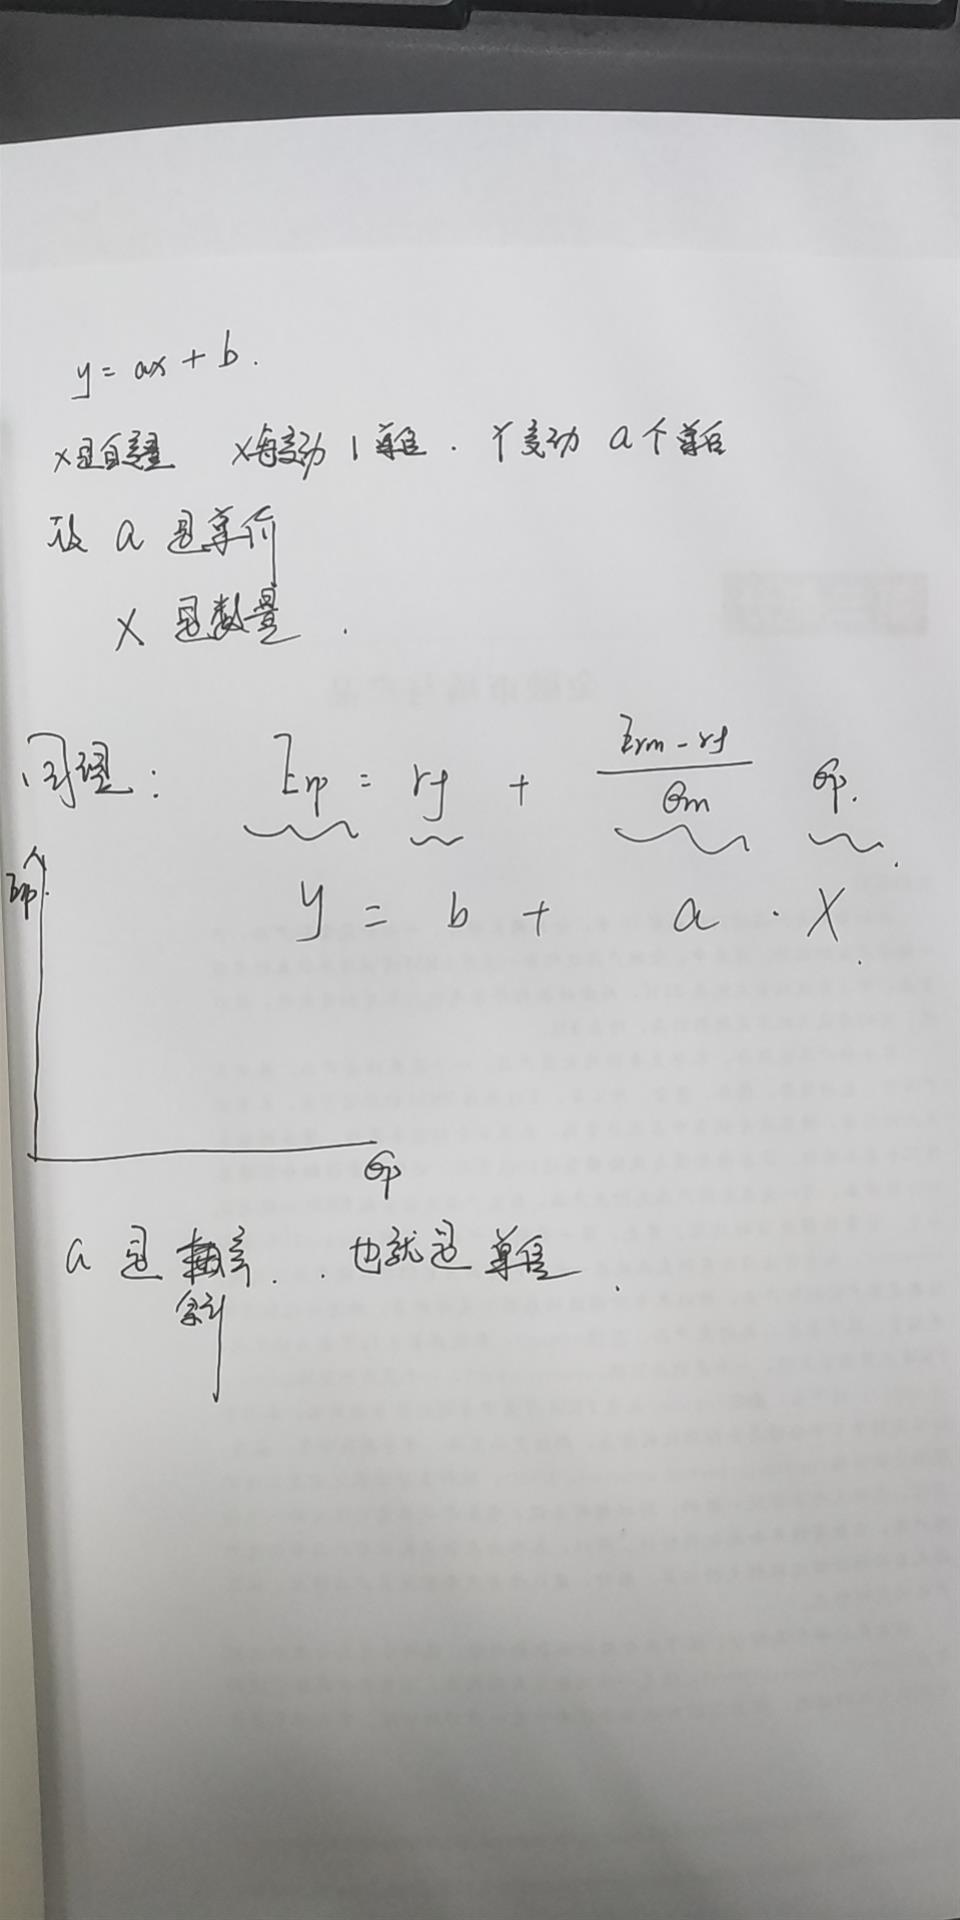 y = ax + b .
x是自变量 x每变动 1 单位 . Y变动 a个单位
故 a 是单价
X 是数量 .
同理 : Erp = rf + (Erm - rf)/σm σp .
y = b + a · X .
Erp
σp
a 是 率 . . 也就是 单位 .
斜